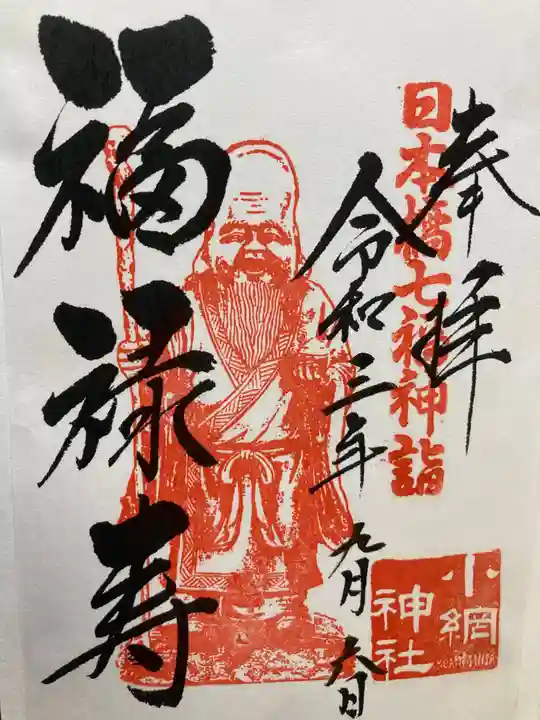 奉拝
日本橋七福神詣
令和三年九月六日
福禄寿
小網
神社